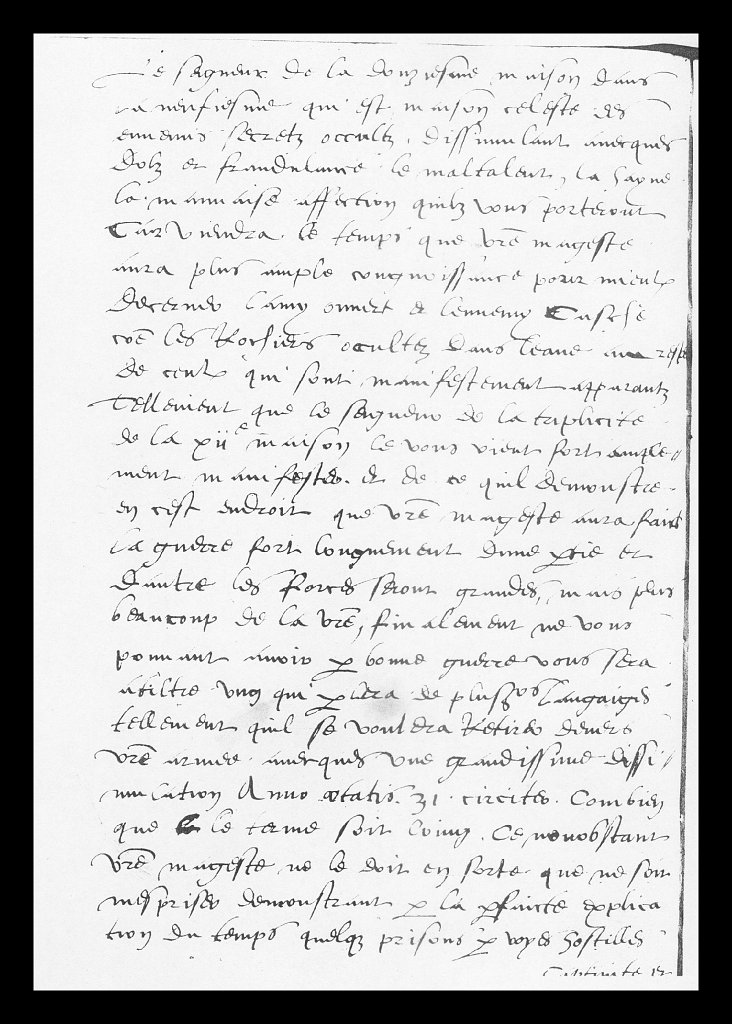 Le seigneur de la douziesme maison dans
la neufiesme qui est maison celeste des
ennemis secretz occultz, dissimulant avecques
dolz et fraudulance le maltalent, la hayne
la mauvaise affection quilz vous porteront
Car viendra le temps que vre mageste
aura plus ample congnoissance pour mieulx
decerner lamy ouvert et lennemy Casché
coe les Rochiers occultez dans leaue au reste
de ceulx qui sont manifestement apparantz
Tellement que le seigneur de la triplicite
de la xiie maison le vous vient fort ample
ment manifester. Et de ce quil demonstre
en cest endroit que vre mageste aura faict
la guerre fort longuement dune ptie et
dautre les forces seront grandes, mais plus
beaucoup de la vre, finalement ne vous
pouvant avoir p bonne guerre vous sera
atiltre ung qui plera de plusrs langaiges
tellement quil se vouldra Retirer devers
vre armee avecques une grandissime dissi
mulation Anno ætatis. 31. circiter. Combien
que le terme soit loing. Ce nonobstant
vre mageste ne le doit en sorte que ne soit
mespriser demonstrant p la pfaicte explica
tion du temps quelqz prisons p voyes hostilles
Captivite et